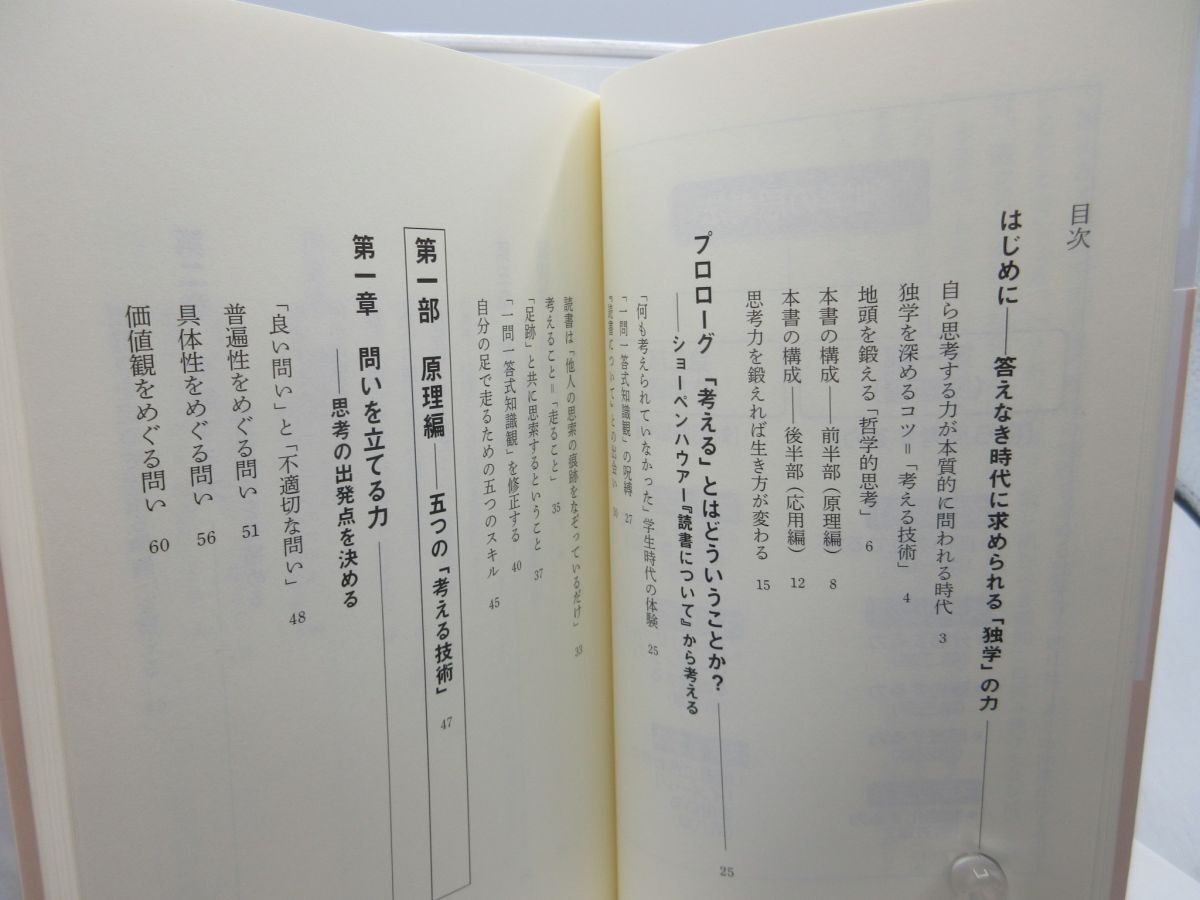 目次
はじめに――答えなき時代に求められる「独学」の力
自ら思考する力が本質的に問われる時代 3
独学を深めるコツ＝「考える技術」 4
地頭を鍛える「哲学的思考」 6
本書の構成――前半部（原理編） 8
本書の構成――後半部（応用編） 12
思考力を鍛えれば生き方が変わる 15
プロローグ 「考える」とはどういうことか？ 25
――ショーペンハウアー『読書について』から考える
「何も考えられていなかった」学生時代の体験 25
「一問一答式知識観」の呪縛 27
『読書について』との出会い 30
読書は「他人の思索の痕跡をなぞっているだけ」 33
考えること＝「走ること」 35
「足跡」と共に思索するということ 37
「一問一答式知識観」を修正する 40
自分の足で走るための五つのスキル 45
第一部 原理編――五つの「考える技術」 47
第一章 問いを立てる力
――思考の出発点を決める
「良い問い」と「不適切な問い」 48
普遍性をめぐる問い 51
具体性をめぐる問い 56
価値観をめぐる問い 60